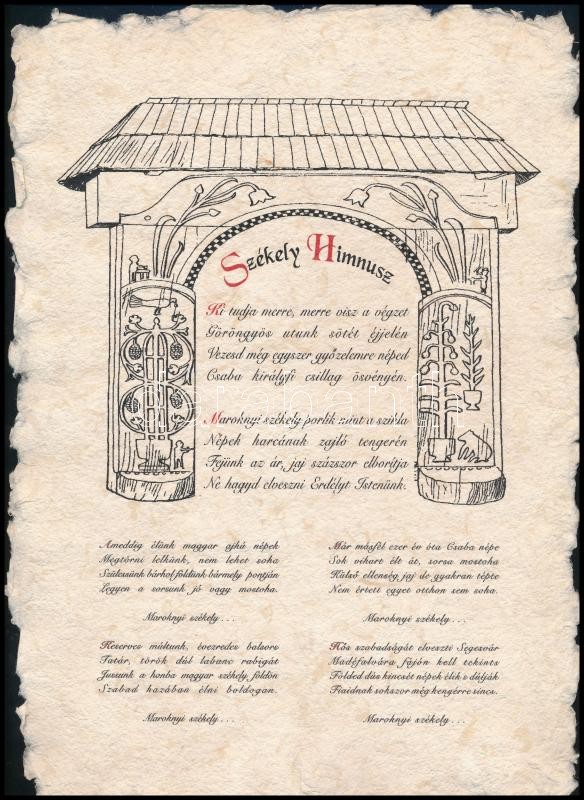 Székely Himnusz
Ki tudja merre, merre visz a végzet
Göröngyös utunk sötét éjjelén
Vezesd még egyszer győzelemre néped
Csaba királyfi csillag ösvényén.
Maroknyi székely porlik mint a szikla
Népek harcának zajló tengerén
Fejünk az ár, jaj százszor elborítja
Ne hagyd elveszni Erdélyt Istenünk.
Ameddig élünk magyar ajkú népek
Megtörni lelkünk, nem lehet soha
Szülessünk bárhol földünk bármely pontján
Legyen a sorsunk jó vagy mostoha.
Maroknyi székely...
Keserves múltunk, évezredes balsors
Tatár, török dúl labanc rabigát
Jussunk a honba magyar székely földön
Szabad hazában élni boldogan.
Maroknyi székely...
Már másfél ezer év óta Csaba népe
Sok vihart élt át, sorsa mostoha
Külső ellenség jaj de gyakran tépte
Nem értett egyet otthon sem soha.
Maroknyi székely...
Hős szabadságát elveszti Segesvár
Mádéfalvára fájón kell tekints
Földed dús kincsét népek élik s dúlják
Fiaidnak sokszor még kenyérre sincs.
Maroknyi székely...